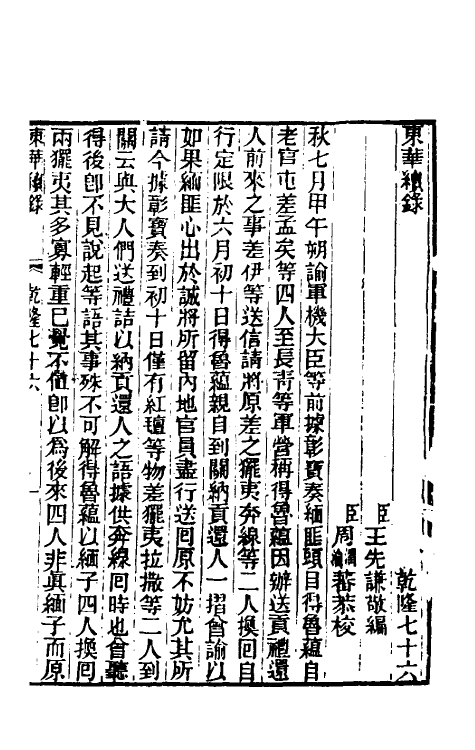 東華續錄
乾隆七十六
臣王先謙敬編
臣周潤蕃恭校
秋七月甲午朔諭軍機大臣等前據彰寶奏緬匪頭目得魯蘊自
老官屯差孟矣等四人至長青等軍營稱得魯蘊因辦送貢禮還
人前來之事差伊等送信請將原差之擺夷奔線等二人換回自
行定限於六月初十日得魯蘊親自到關納貢還人一摺曾諭以
如果緬匪心出於誠將所留內地官員盡行送回原不妨允其所
請今據彰寶奏到初十日僅有紅氊等物差擺夷拉撒等二人到
關云與大人們送禮詰以納貢還人之語據供奔線回時也曾聽
得後卽不見說起等語其事殊不可解得魯蘊以緬子四人換回
兩擺夷其多寡輕重已覺不値卽以為後來四人非眞緬子而原
東華續錄 乾隆七十六 一